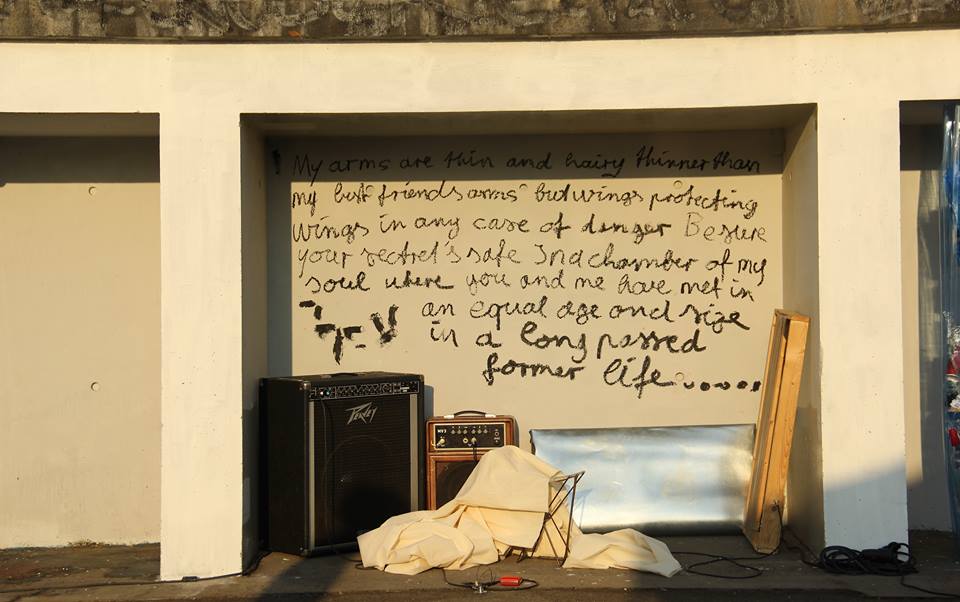 My arms are thin and hairy thinner than
my best friends arms but wings protecting
wings in any case of danger Be sure
your sectret's safe In a chamber of my
soul where you and me have met in
an equal age and size
in a long passed
former life......
PEAVEY